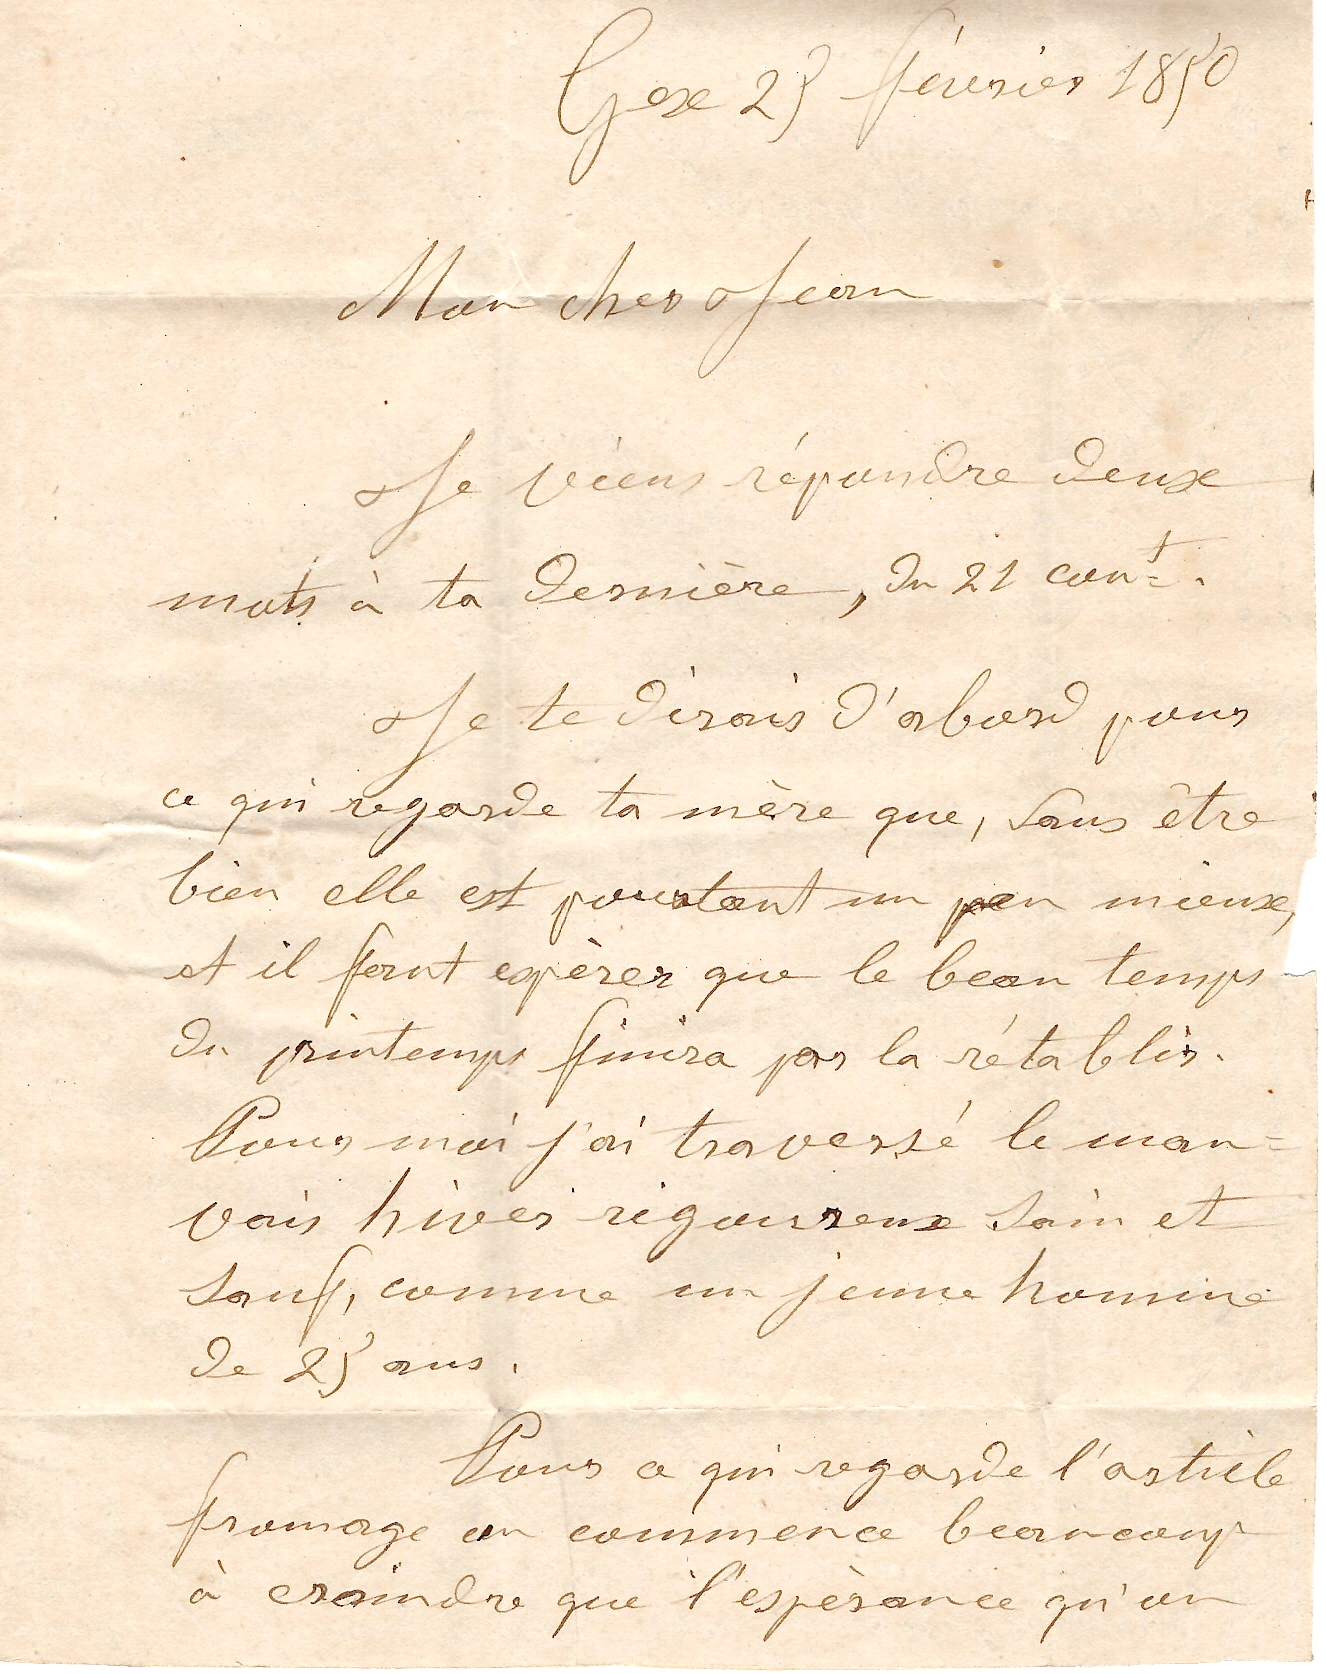 Gex 25 février 1850
Mon cher Jean
Je viens répondre deux
mots à ta dernière, du 21 cour.t
Je te dirais d'abord pour
ce qui regarde ta mère que, sans être
bien elle est pourtant un peu mieux,
et il faut espèrer que le beau temps
du printemps finira par la rétablir.
Pour moi j'ai traversé le mau=
vais hiver rigoureux sain et
sauf, comme un jeune homme
de 25 ans.
Pour ce qui regarde l'article
fromage on commence beaucoup
à craindre que l'espèrance qu'on